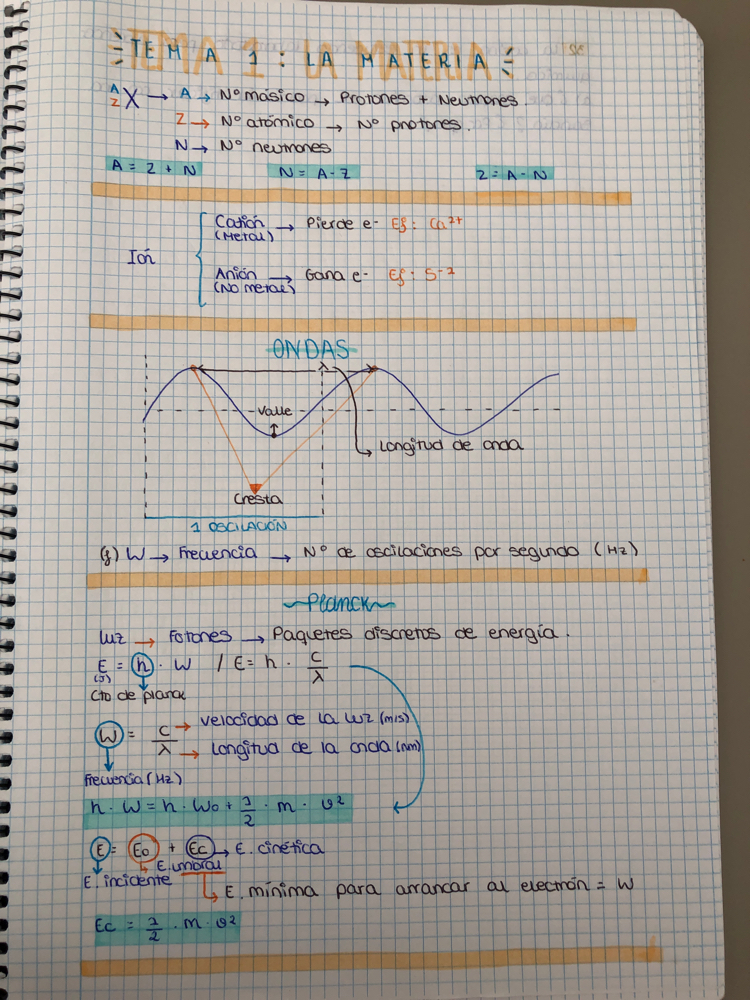 TEMA 1: LA MATERIA
A Z X → A → Nº másico → Protones + Neutrones.
Z → Nº atómico → Nº protones.
N → Nº neutrones
A = Z + N N = A - Z Z = A - N
Ión
Catión (Metal) → Pierde e- Ej: Ca²⁺
Anión (No metal) → Gana e- Ej: S⁻²
ONDAS
λ
Valle
Longitud de onda
Cresta
1 OSCILACIÓN
(f) W → Frecuencia → Nº de oscilaciones por segundo (Hz)
Planck
luz → Fotones → Paquetes discretos de energía.
E = h · W / E = h · c/λ
(J)
Cte de planck
W = c/λ → velocidad de la luz (m/s)
→ Longitud de la onda (nm)
Frecuencia (Hz)
h · W = h · W₀ + 1/2 · m · v²
E = E₀ + Ec → E. cinética
E. umbral
E. incidente
E. mínima para arrancar al electrón = W
Ec = 1/2 · m · v²